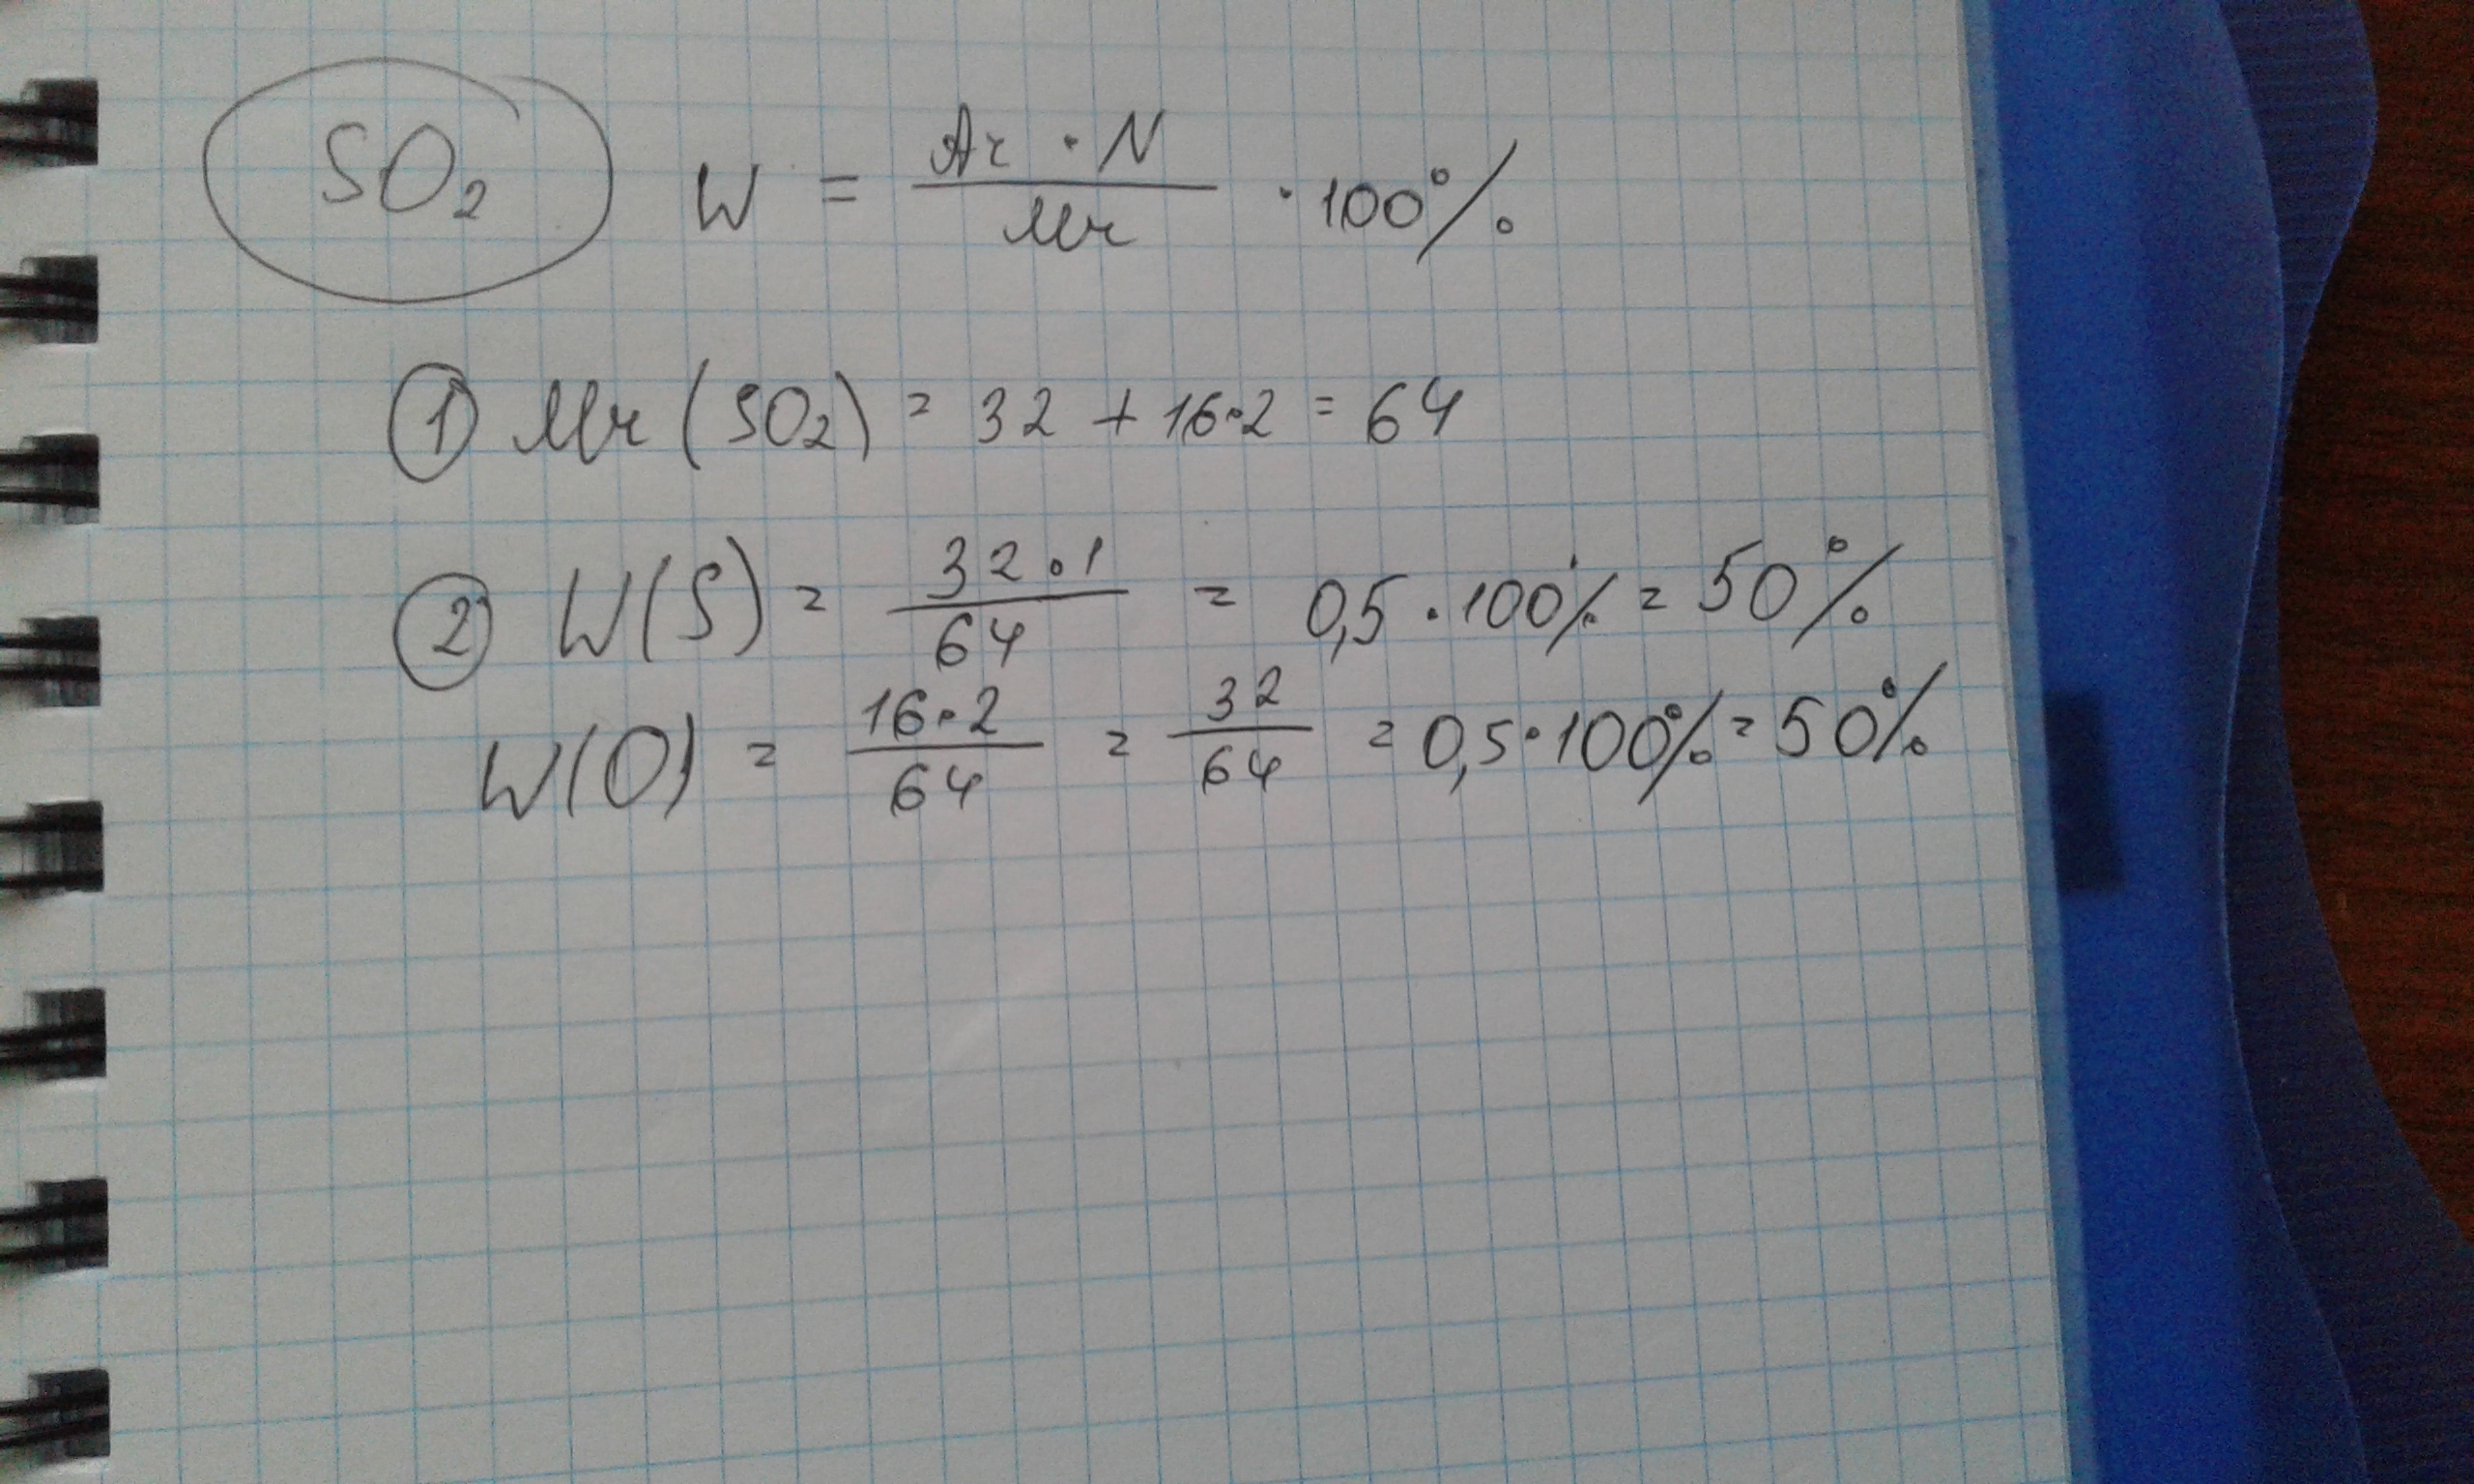 SO₂ W = Ar · N / Mr · 100%
① Mr (SO₂) = 32 + 16·2 = 64
② W(S) = 32·1 / 64 = 0,5 · 100% = 50%
W(O) = 16·2 / 64 = 32 / 64 = 0,5·100% = 50%